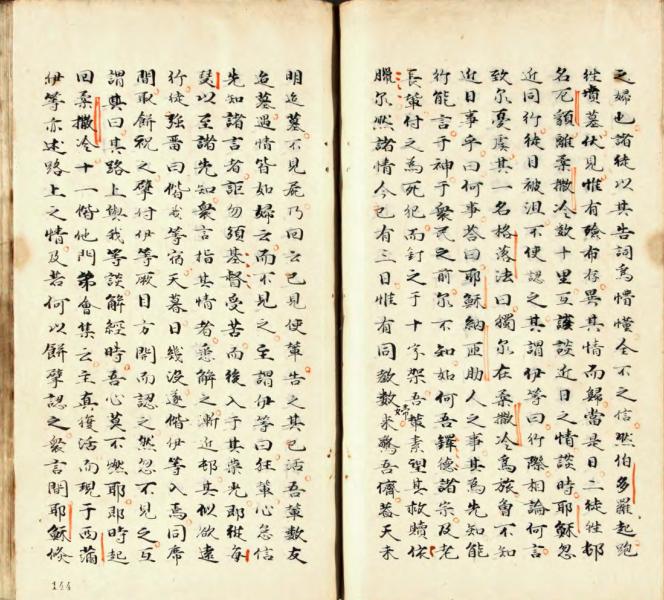 之婦也諸徒以其告詞為懵懂全不之信然伯多羅起跑
徃墳墓伏見惟有殮布存異其情而歸當是日二徒徃邨
名厄瑪離柔撒冷數十里互談近日之情談時耶穌忽
近同行徒目被沮不使認之其謂伊等曰行際相論何言
致尔憂虞其一名格落法曰獨尔在柔撒冷為旅曾不知
近日事乎曰何事答曰耶穌納匝助人之事其為先知能
行能言于神于衆民之前尔不知如何吾鐸德諸宗及老
長輩付之為死犯而釘之于十字架吾輩素望其救贖依
臘尔然諸情今已有三日惟有同教數婦來驚吾儕蓋天未
明造墓不見屍乃回云已見使輩告之其已活吾輩數友
造墓遇情皆如婦云而不見之主謂伊等曰狂輩心怠信
先知諸言者詎勿須基督受苦而後入于其榮光即從每
瑟以至諸先知衆言指其情者悉解之漸近邨其似欲遠
行徒強畱曰偕我等宿天暮日幾没遂偕伊等入焉同席
間取餅祝之擘付伊等厥目方開而認之然忽不見之互
謂其曰其路上與我等談解經時吾心莫不燃耶即時起
回柔撒冷十一偕他門第會集云主真復活而現于西滿
伊等亦述路上之情及若何以餅擘認之衆言間耶穌倏
144